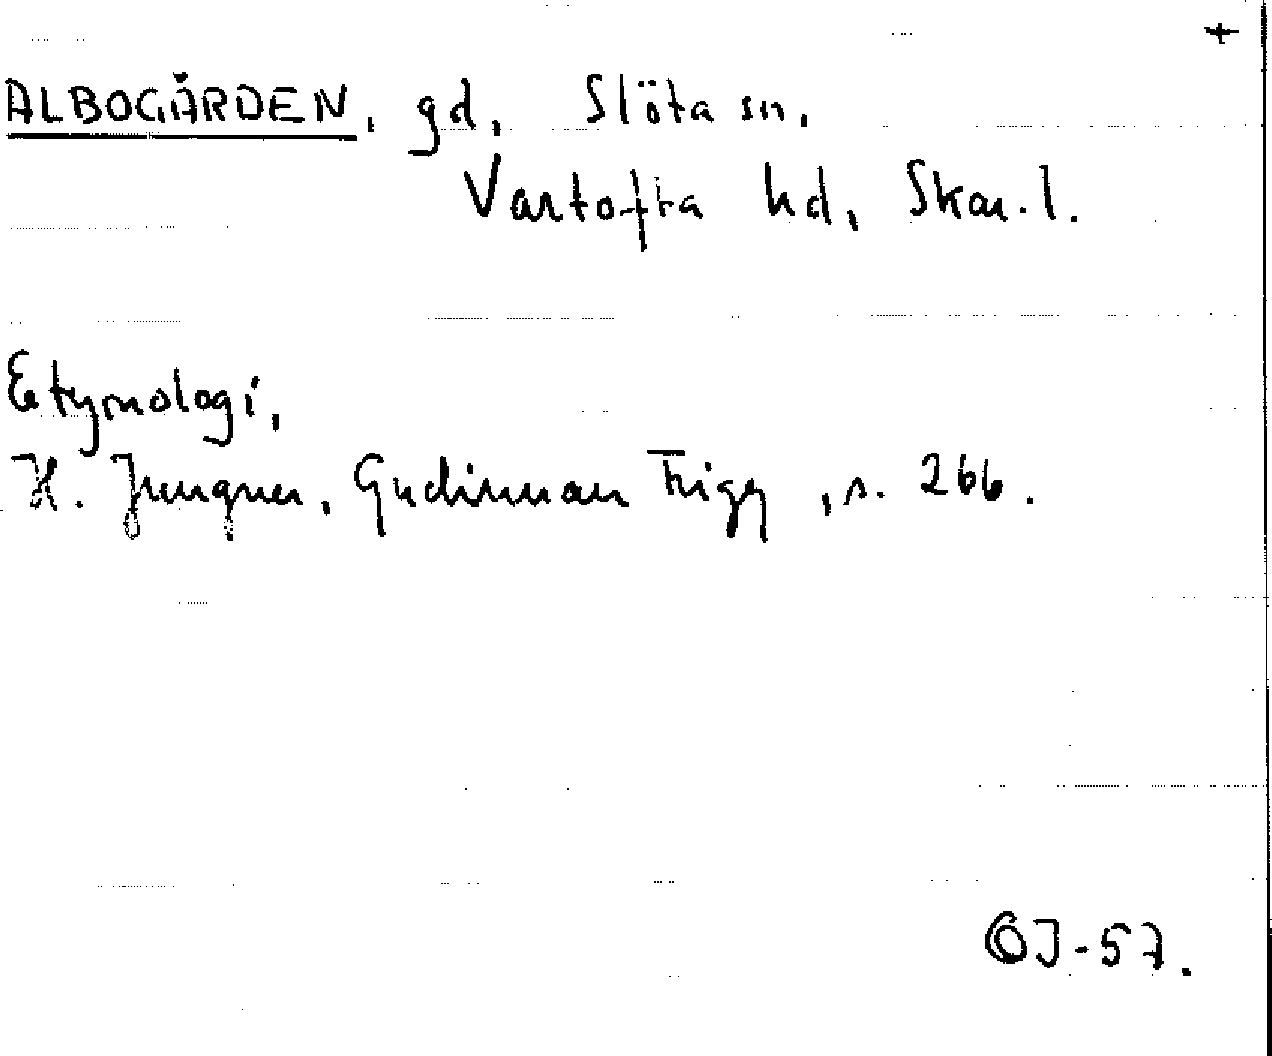 +
ALBOGÅRDEN, gd, Slöta sn,
Vartofta hd, Skar. l.
Etymologi,
H. Jungner, Gudinnan Frigg, s. 266.
OJ-57.